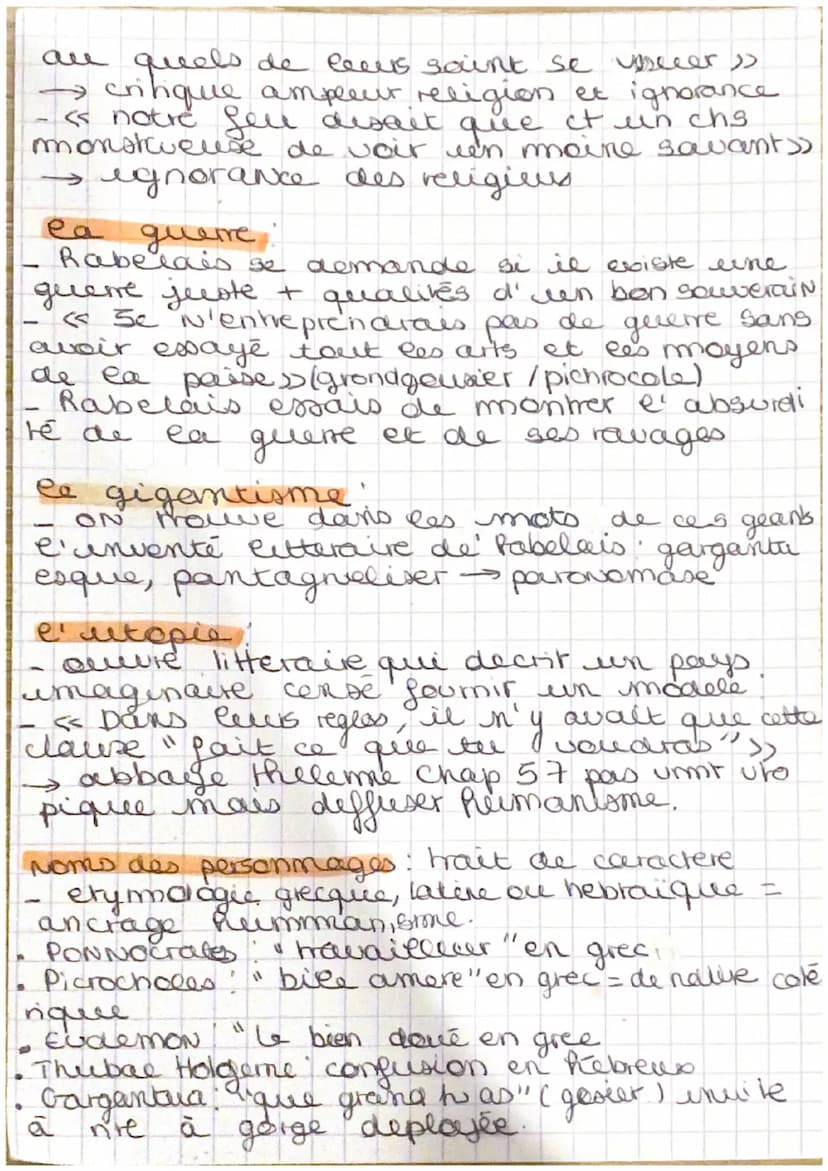 au quels de leurs saint se vouer »
→ critique ampleur religion et ignorance
- « notre feu disait que ct un chs
monstrueuse de voir un moine savant »
→ ignorance des religieus
la guerre :
- Rabelais se demande si il existe une
guerre juste + qualités d'un bon souverain
- « Je n'entreprendrais pas de guerre sans
avoir essayé tout les arts et les moyens
de la paise » (grandgousier / pichrocole)
- Rabelais essais de montrer l'absurdi
té de la guerre et de ses ravages
le gigantisme :
- on trouve dans les mots de ces geants
l'inventé litteraire de Rabelais : garganta
esque, pantagrueliser → paronomase
l'utopie :
- œuvre litteraire qui decrit un pays
imaginaire censé fournir un modele :
- « Dans leurs regles, il n'y avait que cette
clause " fait ce que tu voudras " »
→ abbaye thelemne chap 57 pas vmt uto
pique mais deffuser humanisme.
Noms des personnages : trait de caractere
- etymologie grecque, latine ou hebraïque =
ancrage hummanisme.
• Ponnocrates : "travailleur" en grec
• Picrocholes : " bile amere" en grec = de nature colé
rique
• Eudemon : "le bien doué en grec
• Thubal Holoferne : confusion en hebreux
• Gargantua : "que grand tu as" ( gosier ) invite
à rire à gorge deployée.